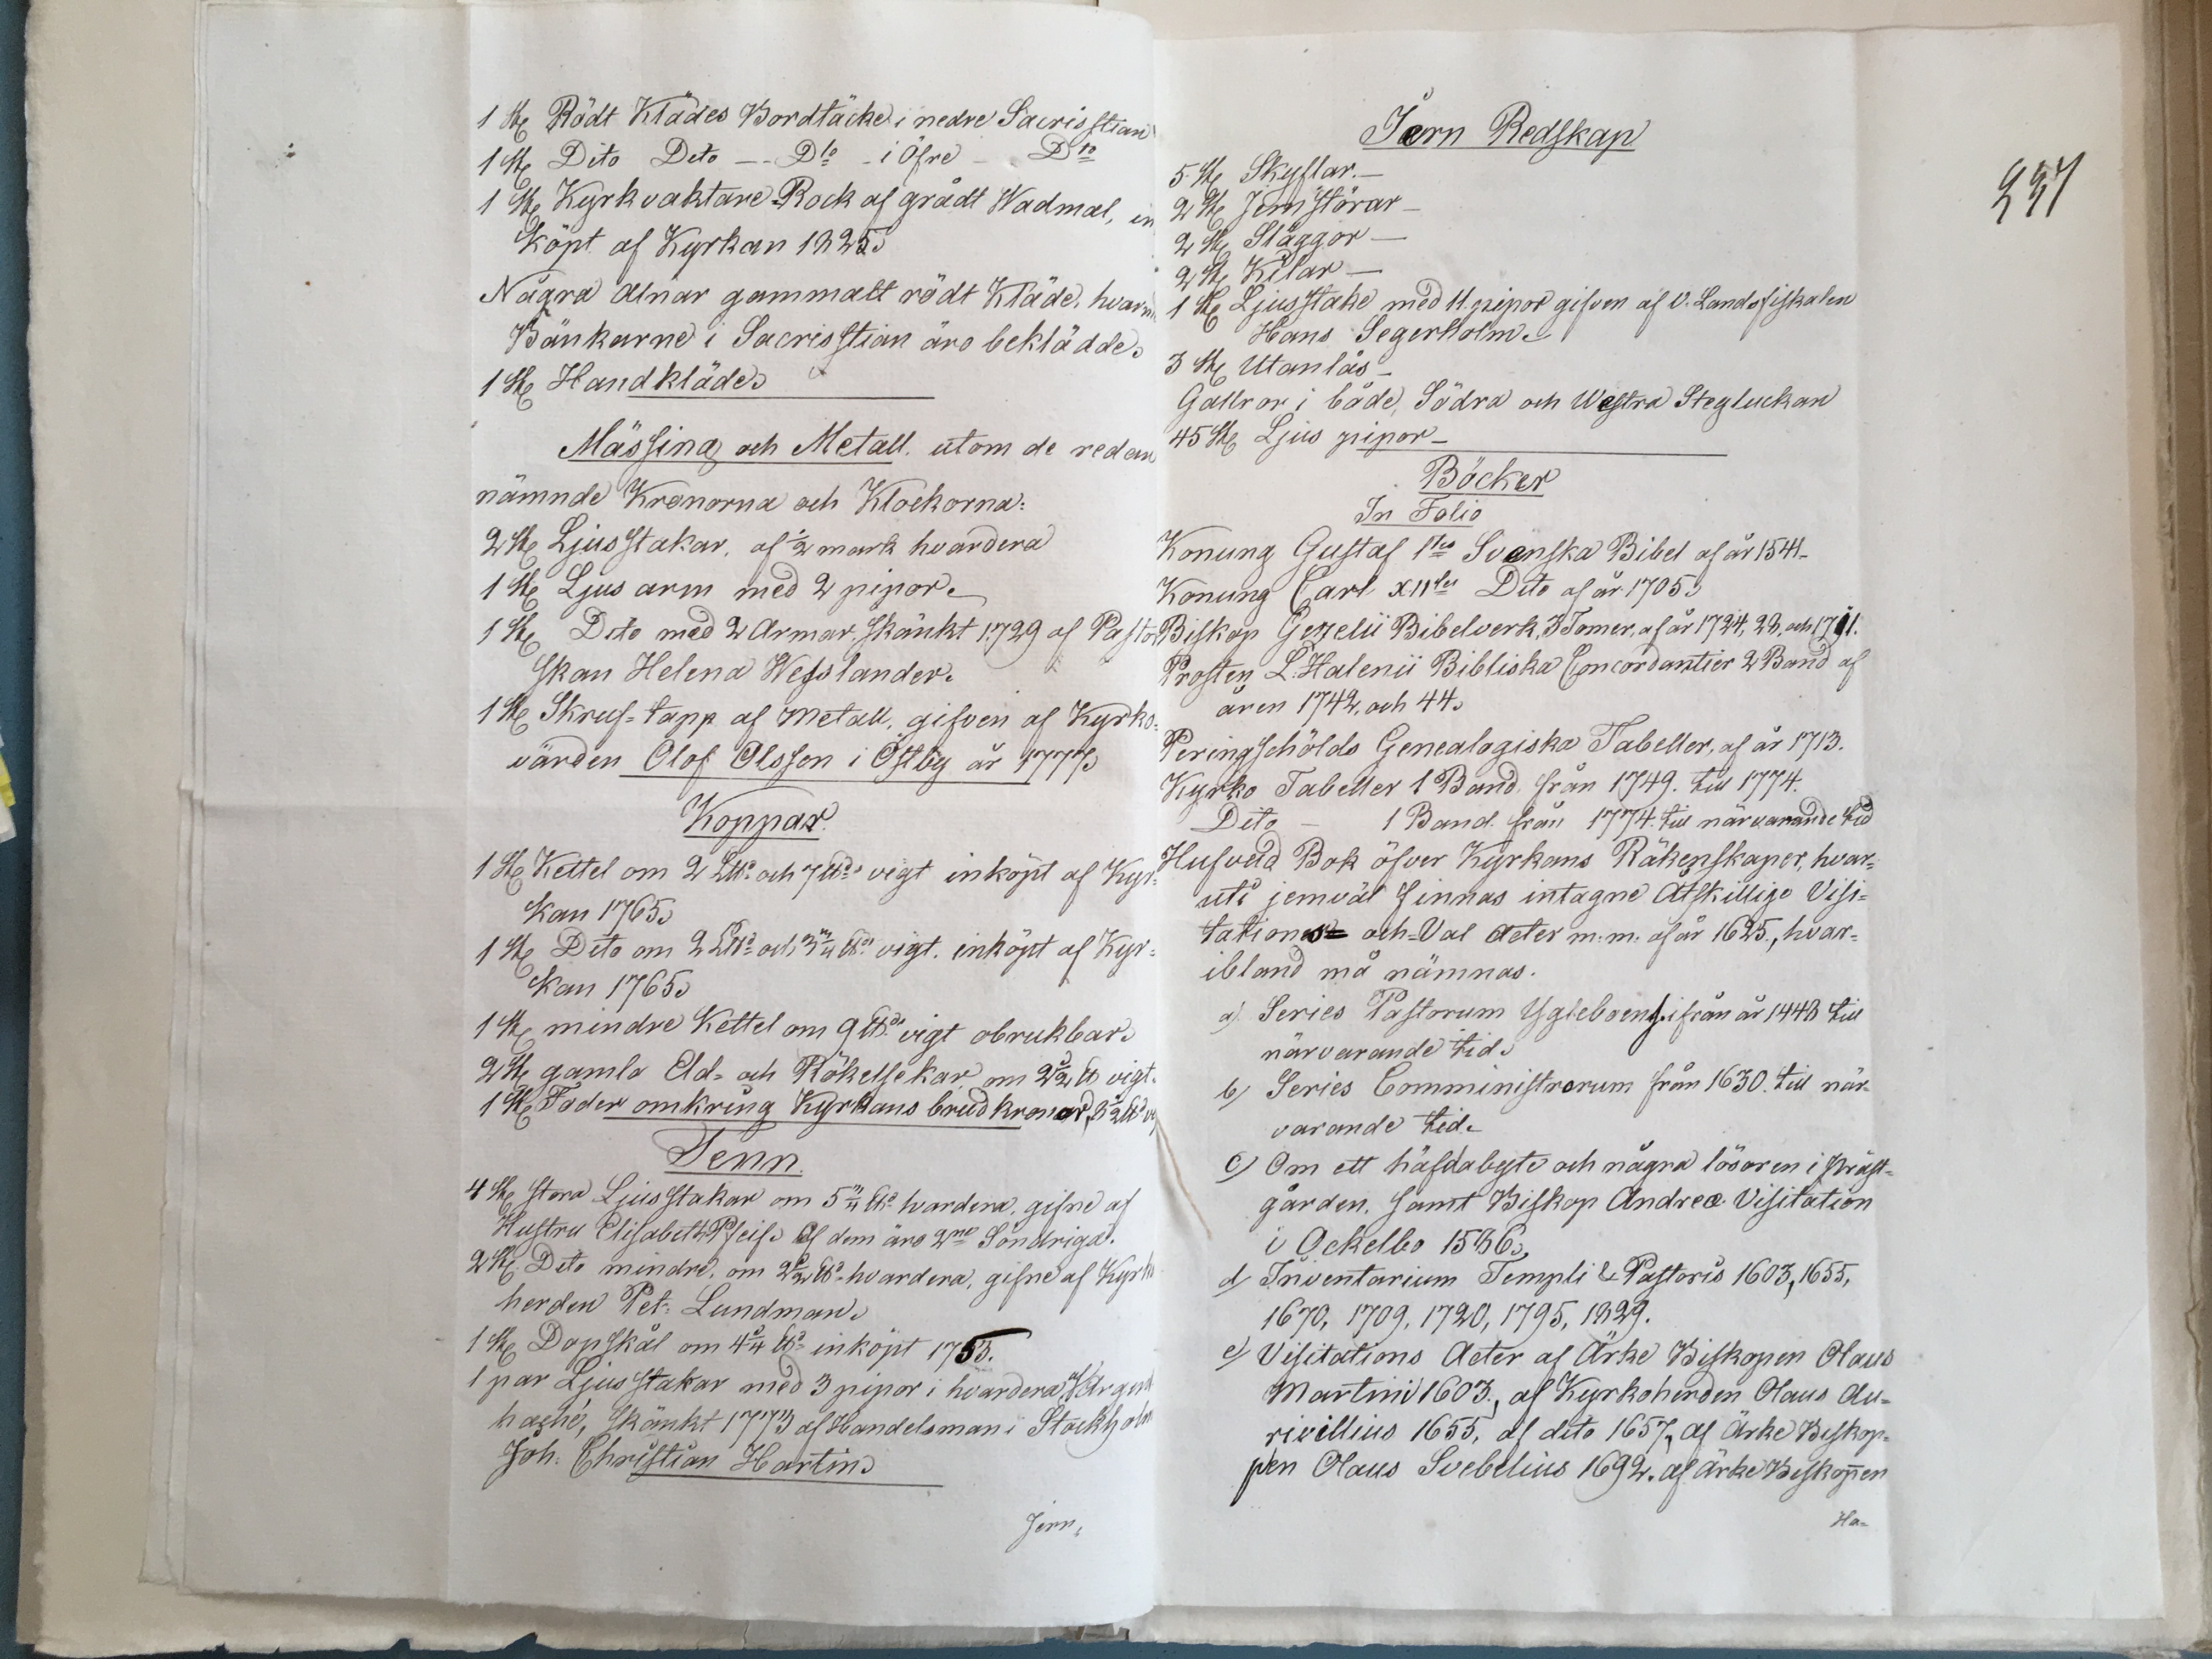 1 St Rödt Klädes Bordtäcke i nedre Sacrisstian
1 St Dito Dito — Dto - i Öfre - Dto
1 St Kyrkvaktare-Rock af grådt Wadmal, in
köpt af Kyrkan 1825.
Några Alnar gammalt rödt Kläde, hvarm
Bänkarne i Sacrisstian äro beklädde.
1 St Handkläde.
Mässing och Metall. utom de redan
nämnde Kronorna och Klockorna:
2 St Ljusstakar, af ½ mark hvardera
1 St Ljus arm med 2 pipor.
1 St Dito med 2 Armar. Skänkt 1729 af Pasto
skan Helena Wesslander.
1 St Skruf-tapp af Metall, gifven af Kyrko-
värden Olof Olsson i Östby år 1777.
Koppar.
1 St Kettel om 2 L℔ och 7 ℔ vigt inköpt af Kyr-
kan 1765.
1 St Dito om 2 L℔ och ¾ ℔ vigt. inköpt af Kyr-
kan 1765.
1 St mindre Kettel om 9 ℔ vigt obrukbar.
2 St gamla Eld- och Rökelsekar, om 2½ ℔ vigt.
1 St Foder omkring Kyrkans brudkronor, 3½ ℔ vi
Tenn.
4 St stora Ljusstakar om 5¾ ℔ hvardera, gifne af
Hustru Elisabeth Pfeif. Af dem äro 2ne Söndriga.
2 St Dito mindre, om 2½ ℔ hvardera, gifne af Kyrko
herden Pet: Lundman.
1 St Dopskål om 4¼ ℔ inköpt 1753.
1 par Ljusstakar med 3 pipor i hvardera, af Argent
haché, skänkt 1773 af Handelsman i Stockholm
Joh: Christian Hartin.
Jern,
Jern Redskap
237
5 St Skyflar.—
2 St Jernstörar—
2 St Släggor—
2 St Kilar—
1 St Ljusstake med 11. pipor gifven af v. Landsfiskalen
Hans Segerholm.
3 St Utanlås—
Gallror i både, Södra och Westra Stegluckan
45 St Ljus pipor—
Böcker
In Folio
Konung Gustaf 1stes Svenska Bibel af år 1541—
Konung Carl XIItes Dito af år 1705.
Biskop Gezelii Bibelverk, 3 Tomer, af år 1724, 28, och 1711.
Prosten L. Halenii Bibliska Concordantier 2 Band af
åren 1742, och 44.
Peringschölds Genealogiska Tabeller, af år 1713.
Kyrko Tabeller 1 Band. från 1749. till 1774.
Dito — 1 Band. från 1774. till närvarande tid
Hufvud Bok öfver Kyrkans Räkenskaper, hvar-
uti jemväl finnas intagne Åtskillige Visi-
tations och Val Acter m: m: af år 1625., hvar-
ibland må nämnas.
a) Series Pastorum Ygleboens. ifrån år 1448 till
närvarande tid.
b) Series Comministrorum från 1630. till när-
varande tid.
c) Om ett häfdabyte och några lösören i präst-
gården, samt Biskop Andreæ Visitation
i Ockelbo 1586.,
d) Inventarium Templi & Pastoris 1603, 1655,
1670, 1709, 1720, 1795, 1829.
e) Visitations Acter af Ärke Biskopen Olaus
Martini 1603., af Kyrkoherden Olaus Au-
rivillius 1655, af dito 1657, af Ärke Biskop-
pen Olaus Svebelius 1692. af Ärke Biskoppen
Ha-